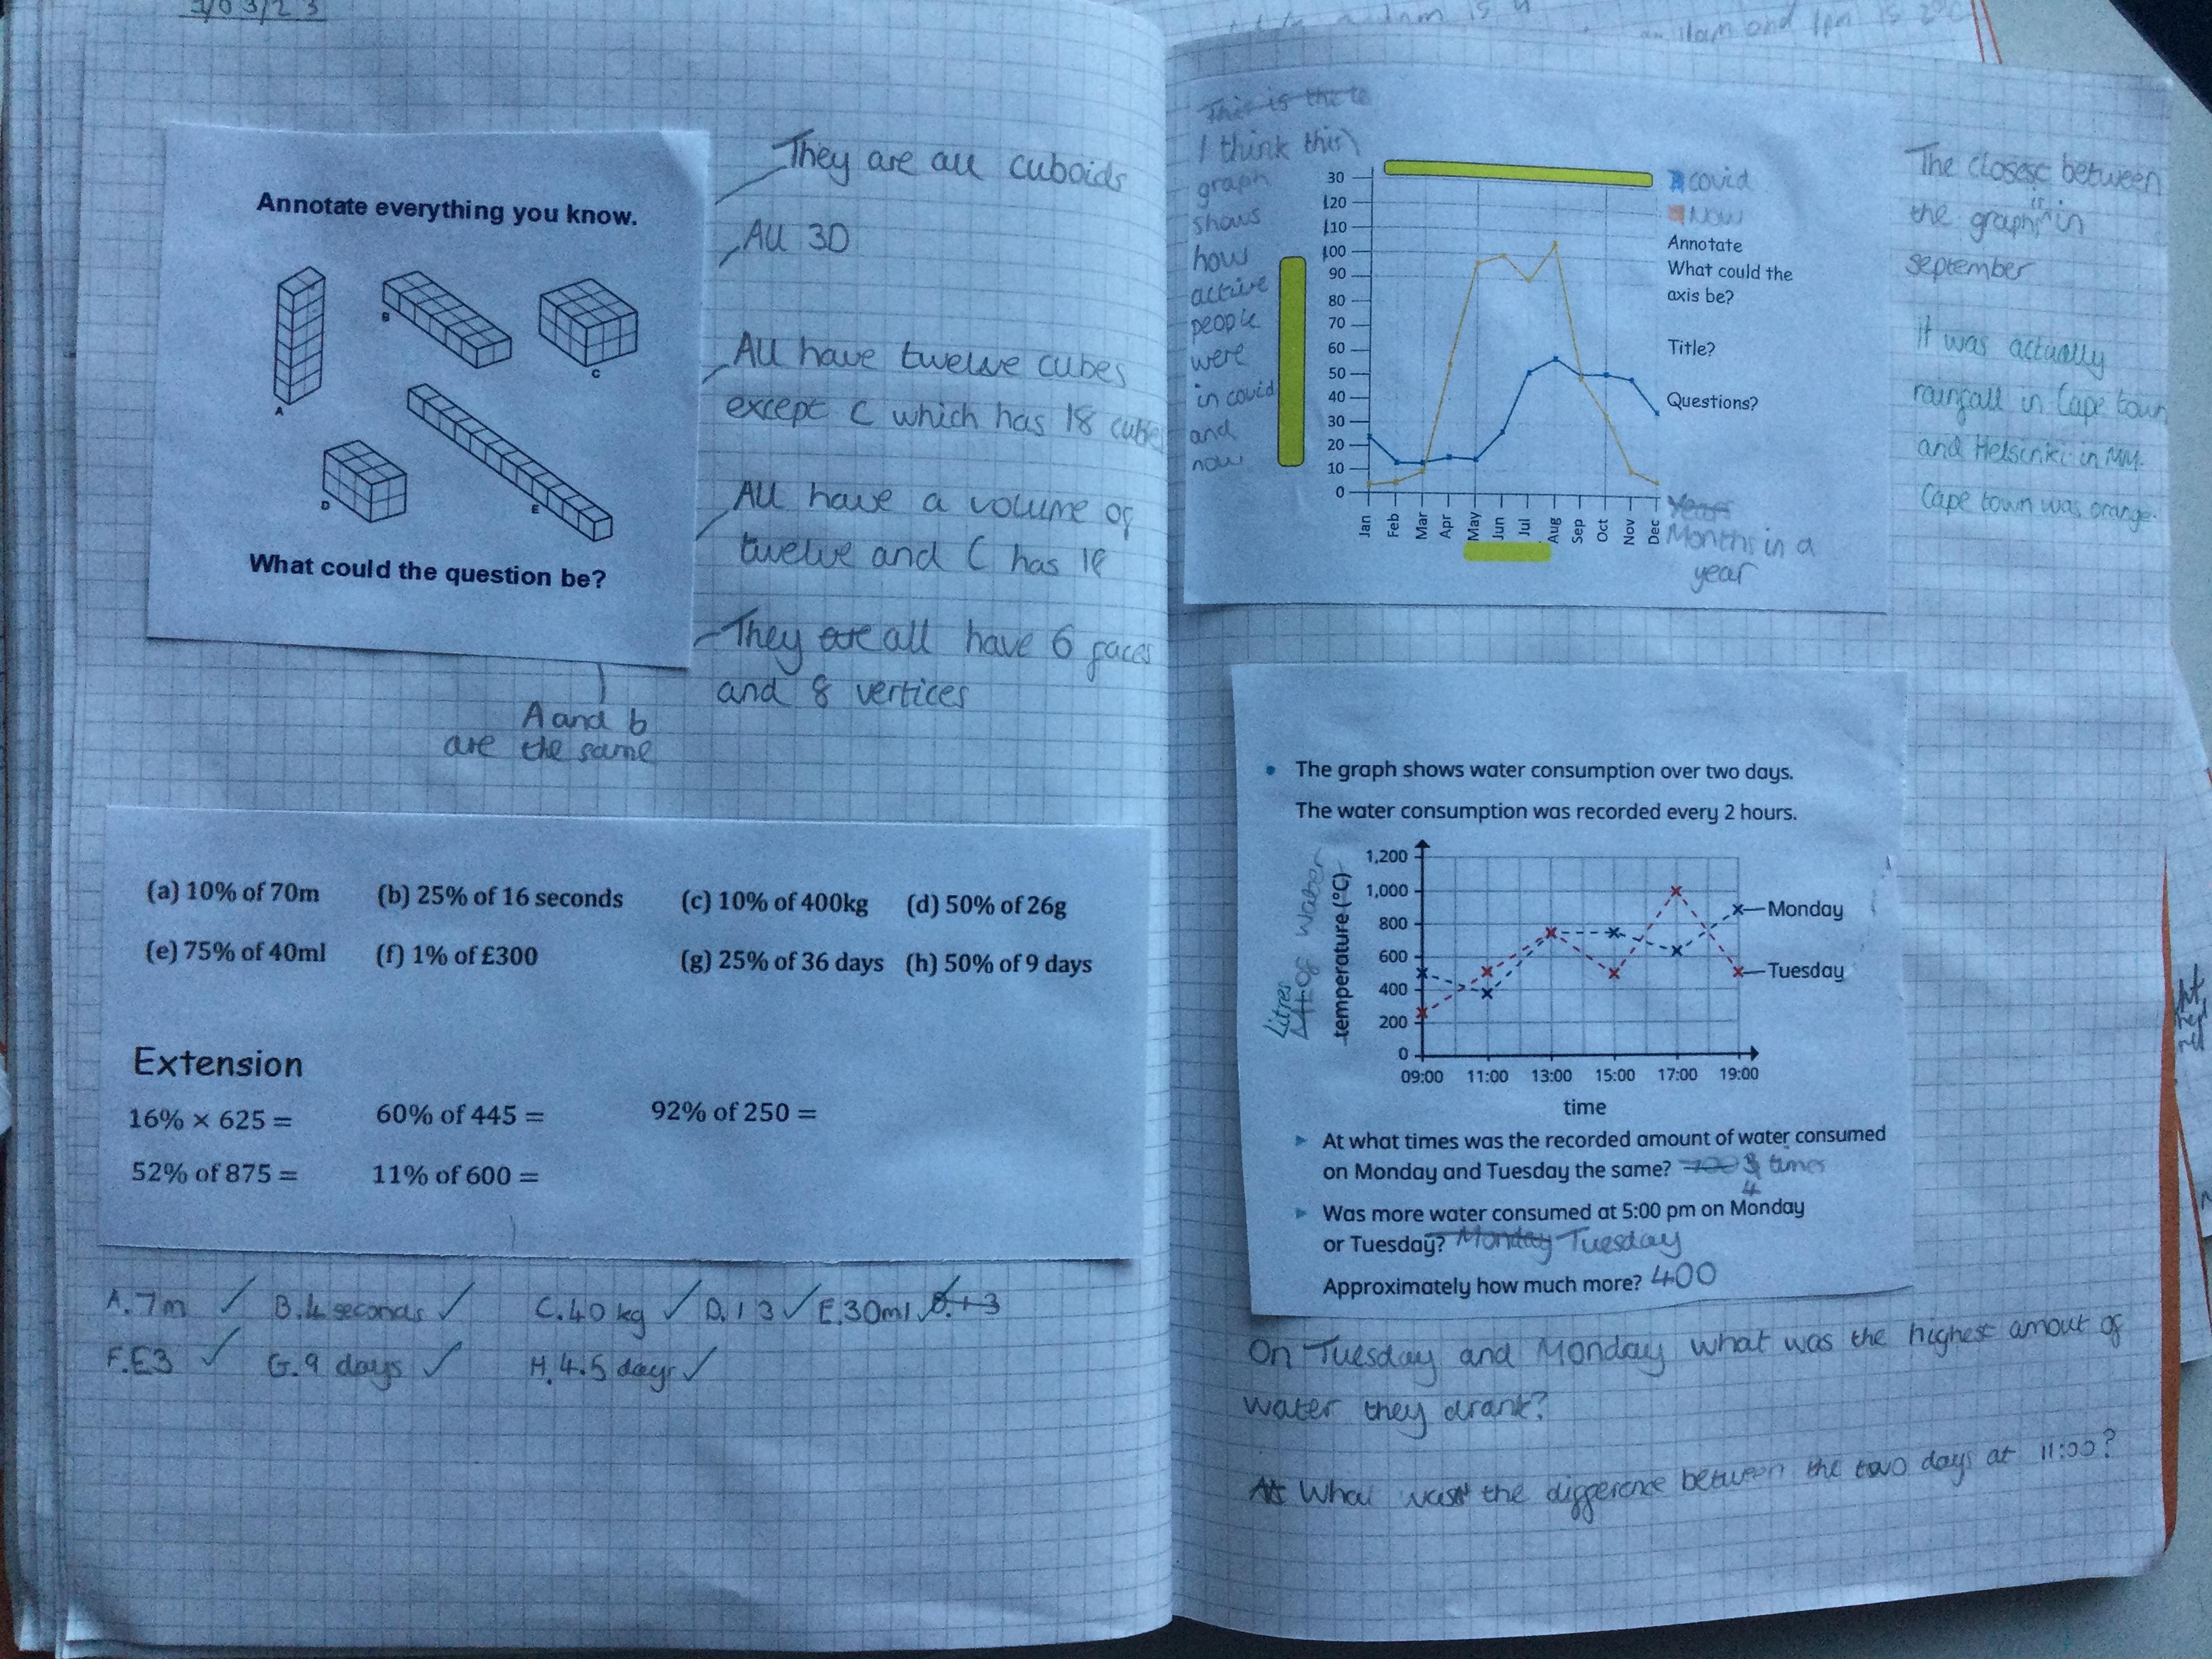 1/03/23
Annotate everything you know.
A
B
C
D
E
What could the question be?
They are all cuboids
All 3D
All have twelve cubes
except C which has 18 cubes
All have a volume of
twelve and C has 18
They are all have 6 faces
and 8 vertices
A and b
are the same
(a) 10% of 70m (b) 25% of 16 seconds (c) 10% of 400kg (d) 50% of 26g
(e) 75% of 40ml (f) 1% of £300 (g) 25% of 36 days (h) 50% of 9 days
Extension
16% × 625 = 60% of 445 = 92% of 250 =
52% of 875 = 11% of 600 =
A.7m ✓ B.4 seconds ✓ C.40 kg ✓ D.13 ✓ E.30ml ✓ D.13
F.£3 ✓ G.9 days ✓ H.4.5 days ✓
11am and 1pm is
This is the
I think this
graph
shows
how
active
people
were
in covid
and
now
30
120
110
100
90
80
70
60
50
40
30
20
10
0
Jan Feb Mar Apr May Jun Jul Aug Sep Oct Nov Dec
Years
Months in a
year
covid
Now
Annotate
What could the
axis be?
Title?
Questions?
The closest between
the graph is in
september
It was actually
rainfall in Cape town
and Helsinki in MM.
Cape town was orange.
• The graph shows water consumption over two days.
The water consumption was recorded every 2 hours.
Litres of Water
temperature (°C)
1,200
1,000
800
600
400
200
0
Monday
Tuesday
09:00 11:00 13:00 15:00 17:00 19:00
time
At what times was the recorded amount of water consumed
on Monday and Tuesday the same? times
4
Was more water consumed at 5:00 pm on Monday
or Tuesday? Monday Tuesday
Approximately how much more? 400
On Tuesday and Monday what was the highest amout of
water they drank?
At What was the difference between the two days at 11:00?